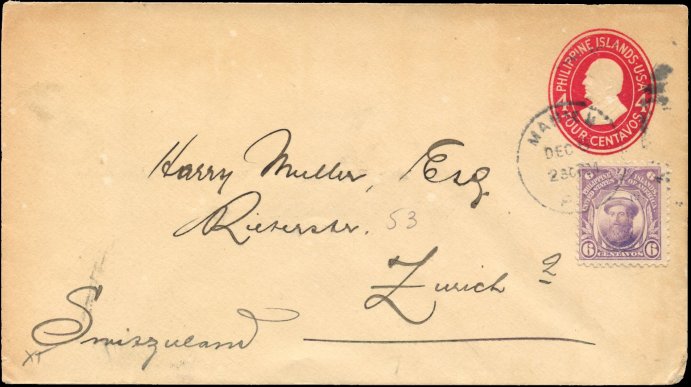 PHILIPPINE ISLANDS·USA
4 FOUR CENTAVOS 4
DEC
2 30 PM
Harry Muller, Esq
Rieterstr. 53
Zurich 2
Switzuland
6 CENTAVOS 6
XT